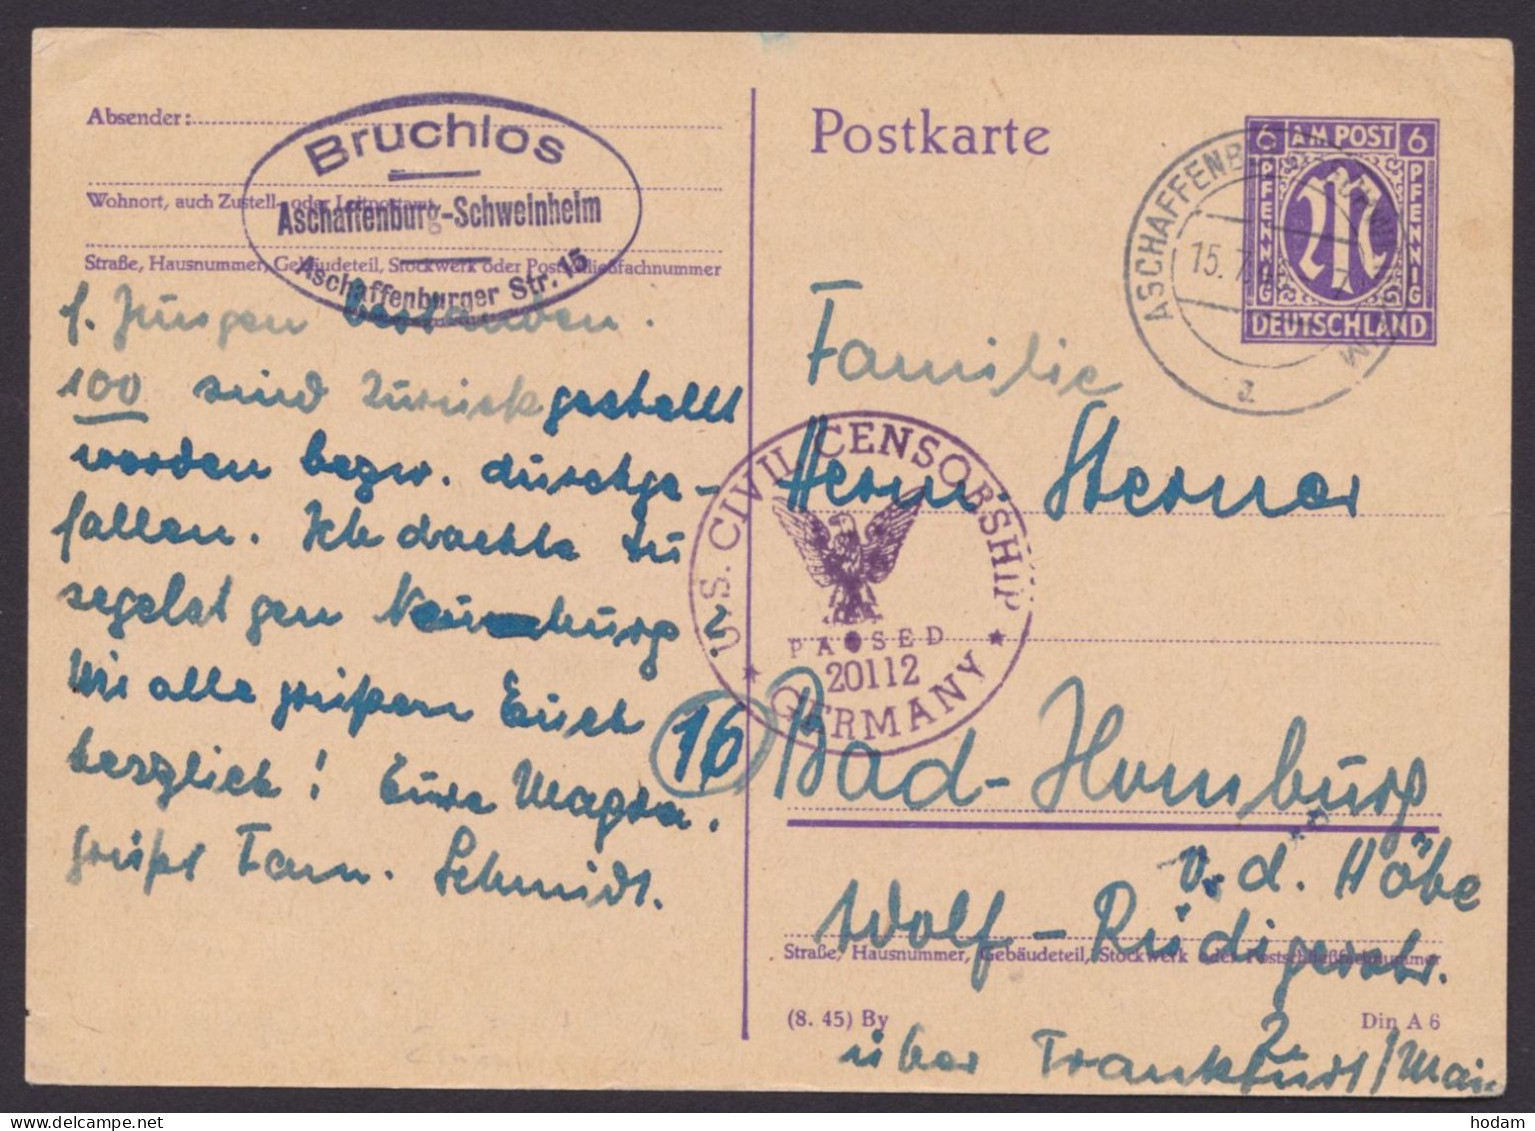 Absender:
Bruchlos
Wohnort, auch Zustell- oder Leitpostamt
Aschaffenburg-Schweinheim
Straße, Hausnummer, Gebäudeteil, Stockwerk oder Postschließfachnummer
Aschaffenburger Str. 15
f. Jungen bestanden.
100 sind zurückgestellt
worden bezw. durchge-
fallen. Ich dachte zu
segelst gen Neuburg?
Wir alle grüßen Euch
herzlich! Eure Magda.
grüßt Fam. Schmidt.
Postkarte
6 AM POST 6
PFENNIG PFENNIG
DEUTSCHLAND
ASCHAFFENB
15.7.
a
Familie
Herm. Sterner
U.S. CIVIL CENSORSHIP
PASSED
20112
GERMANY
16 Bad-Homburg
v. d. Höhe
Wolf-Rüdigerstr.
Straße, Hausnummer, Gebäudeteil, Stockwerk oder Postschließfachnummer
2.
(8. 45) By Din A 6
über Frankfurt/Main
hodam